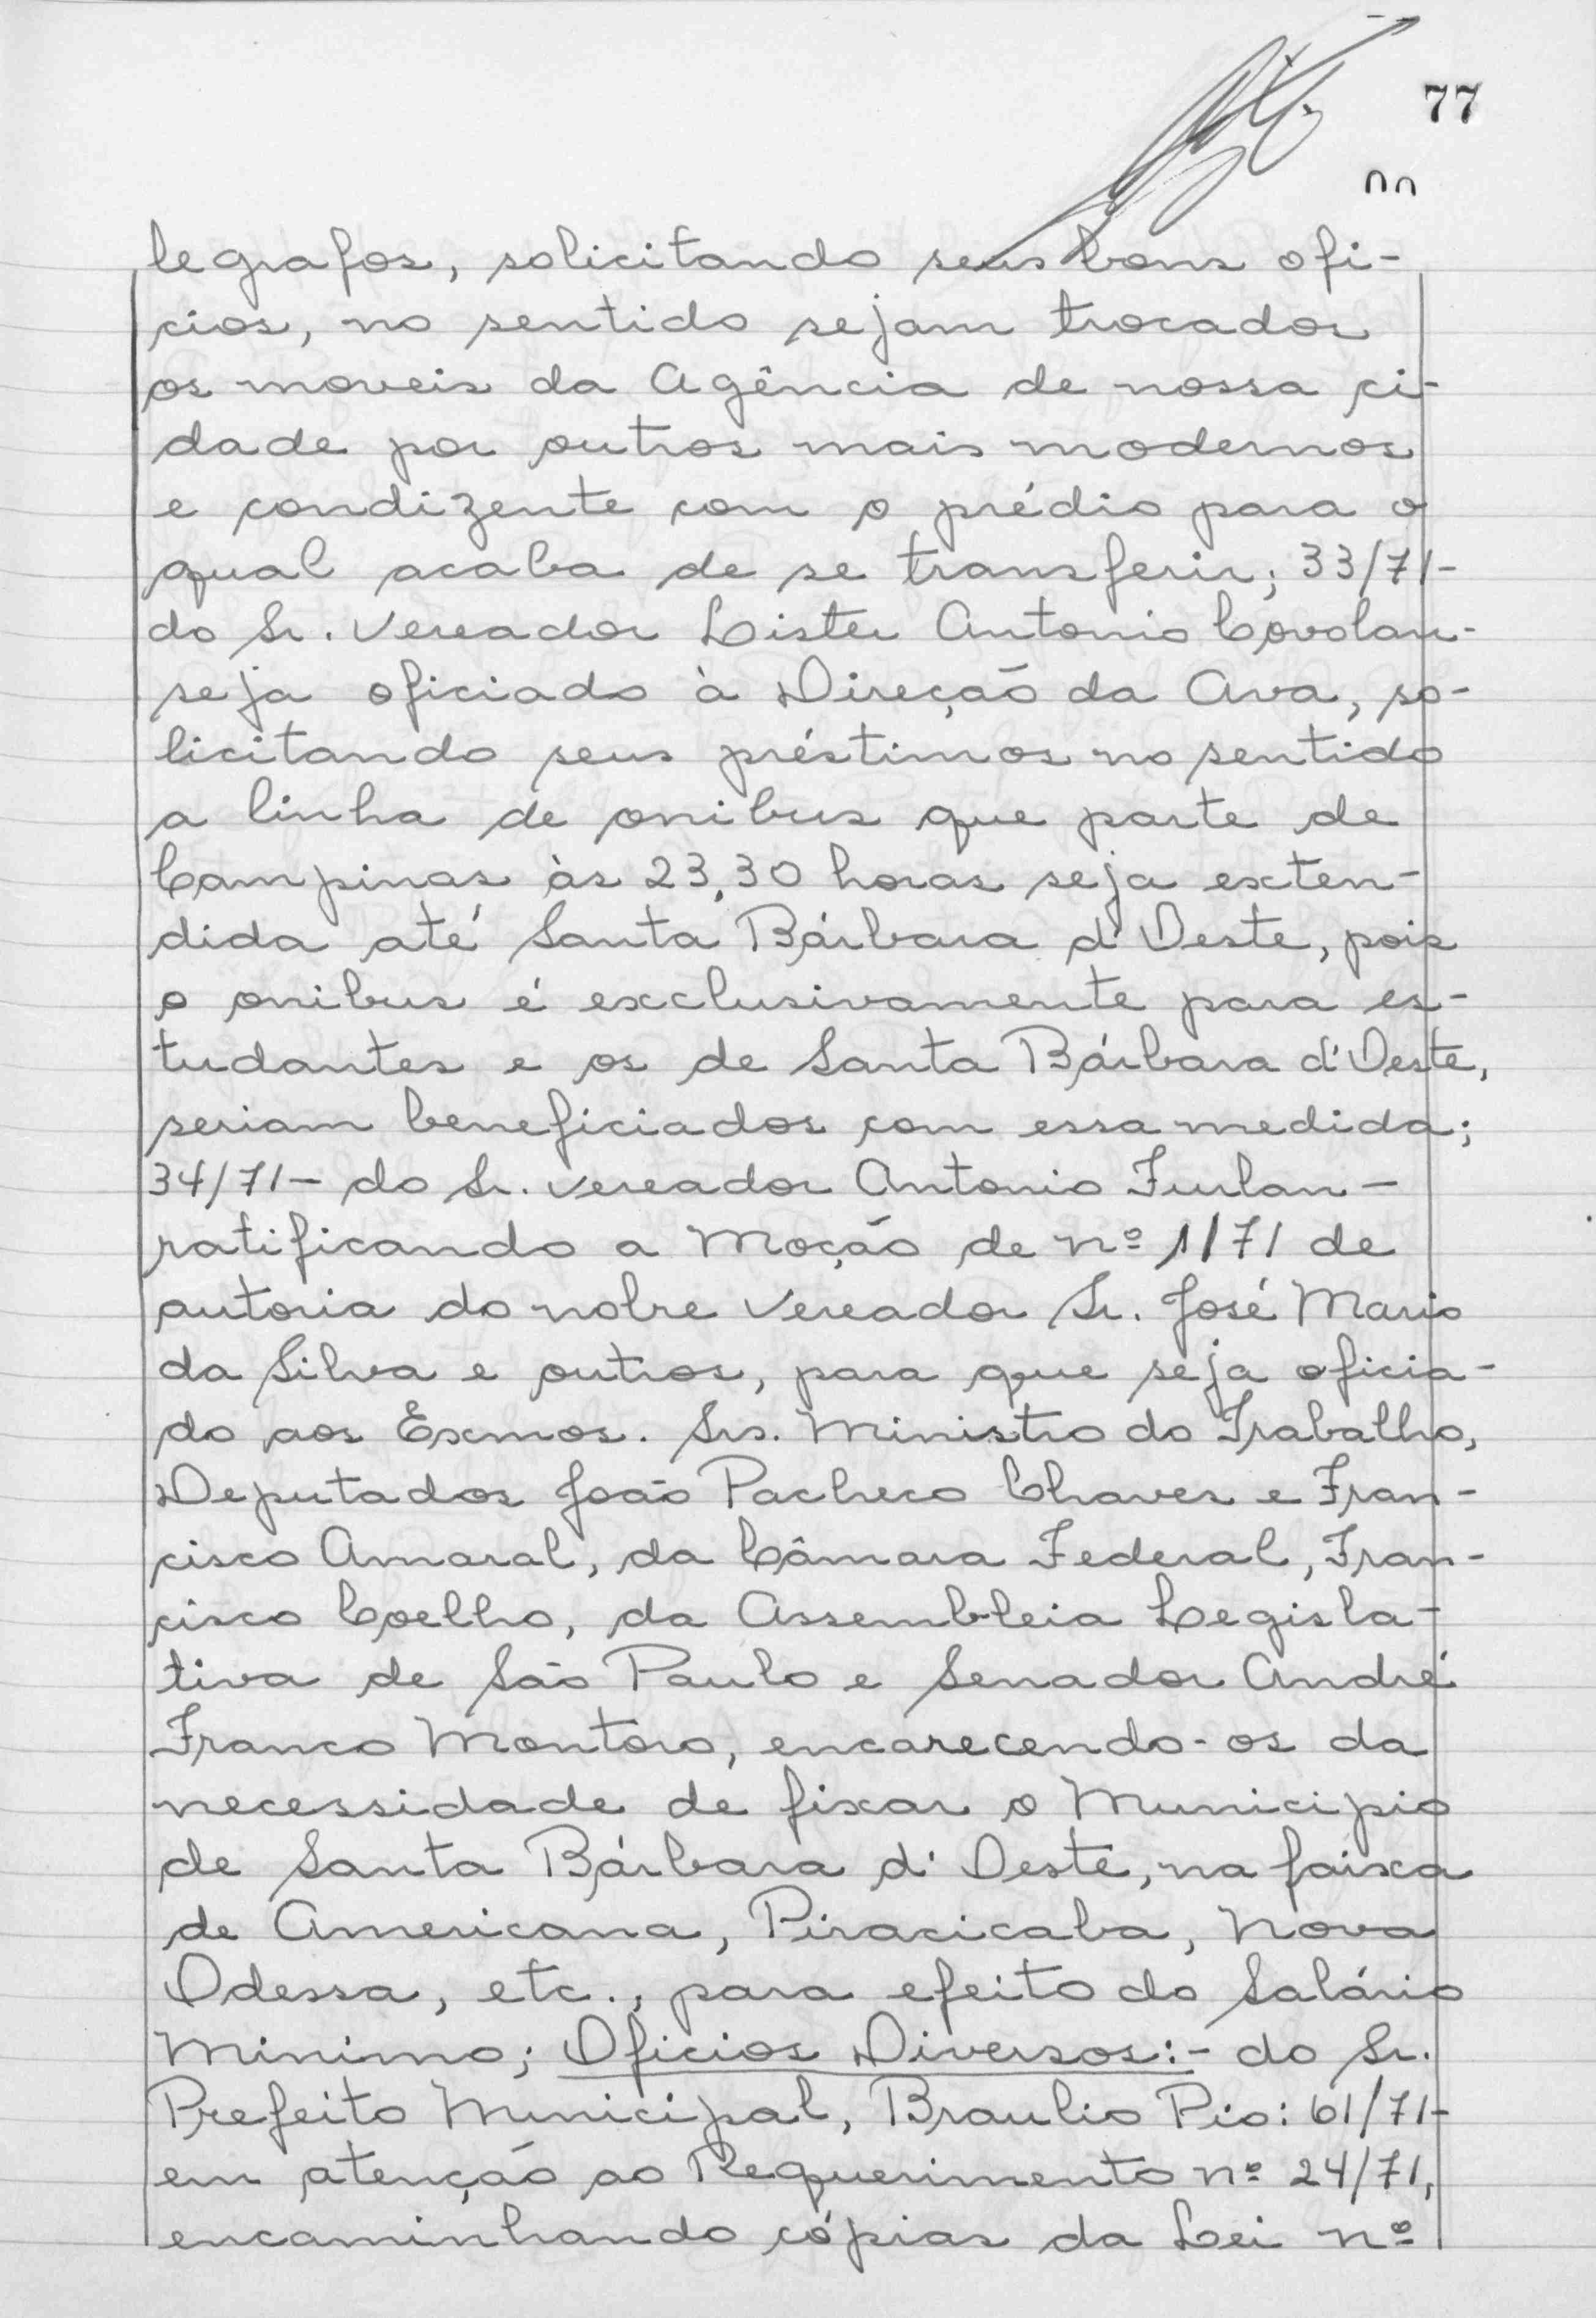 77
legrafos, solicitando seus bons ofi-
cios, no sentido sejam trocados
os moveis da Agência de nossa ci-
dade por outros mais modernos
e condizente com o prédio para o
qual acaba de se transferir; 33/71-
do Sr. Vereador Lister Antonio Covolan-
seja oficiado à Direção da Ava, so-
licitando seus préstimos no sentido
a linha de onibus que parte de
Campinas às 23,30 horas seja exten-
dida até Santa Bárbara d'Oeste, pois
o onibus é exclusivamente para es-
tudantes e os de Santa Bárbara d'Oeste,
seriam beneficiados com essa medida;
34/71- do Sr. vereador Antonio Furlan-
ratificando a Moção de nº 1/71 de
autoria do nobre Vereador Sr. José Mario
da Silva e outros, para que seja oficia-
do aos Exmos. Srs. Ministro do Trabalho,
Deputados João Pacheco Chaves e Fran-
cisco Amaral, da Câmara Federal, Fran-
cisco Coelho, da Assembleia Legisla-
tiva de São Paulo e Senador André
Franco Montoro, encarecendo-os da
necessidade de fixar o Municipio
de Santa Bárbara d'Oeste, na faixa
de Americana, Piracicaba, Nova
Odessa, etc., para efeito do Salário
Minimo; Oficios Diversos:- do Sr.
Prefeito Municipal, Braulio Pio: 61/71-
em atenção ao Requerimento nº 24/71,
encaminhando cópias da Lei nº